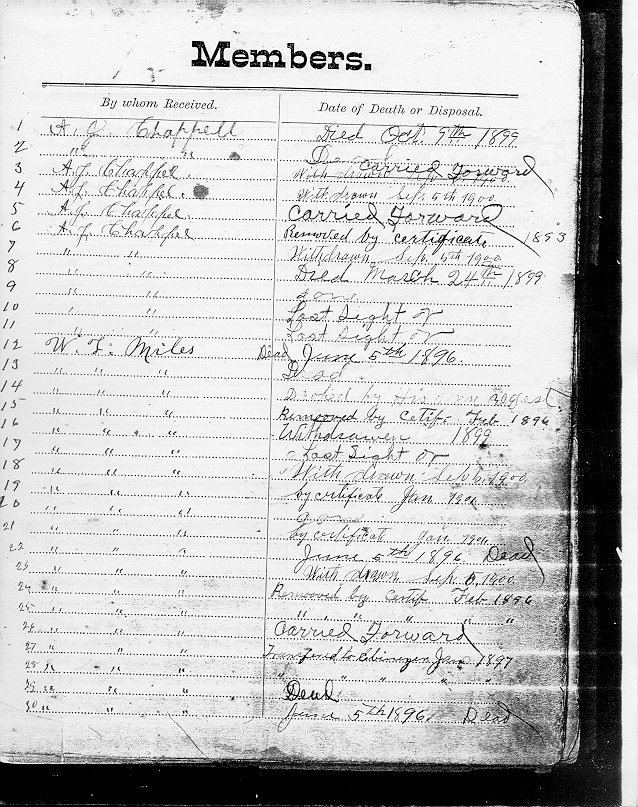 Members.
By whom Received. Date of Death or Disposal.
1 A. J. Chappell Died Oct. 9th 1899
2 " " Carried Forward
3 A. J. Chappel. With drawn
4 A. J. Chappel. With drawn Sep. 5th 1900
5 A. J. Chappel. Carried Forward
6 A. J. Chappel Removed by certificate 1893
7 " " Withdrawn Sep. 5th 1900
8 " " Died March 24th 1899
9 " " gone
10 " " Lost Sight of
11 " " Lost Sight of
12 W. F. Miles Dead June 5th 1896.
13 " " Dead.
14 " " by His own
15 " " Remooved by Cetif. Feb 1896
16 " " Withdrawen 1899
17 " " Lost Sight of
18 " " With drawn Sep 1900
19 " " by certificate Jan 1900
20 " "
21 " " by certificate Jan 1900
22 " " June 5th 1896 Dead
23 " " With drawn Sep. 6, 1900
24 " " Remooved by Certif Feb 1896
25 " " " " " " "
26 " " Carried Forward
27 " " Transfered to Ebinezer Jan 1897
28 " " " " " " "
29 " " Dead
30 " " June 5th 1896. Dead